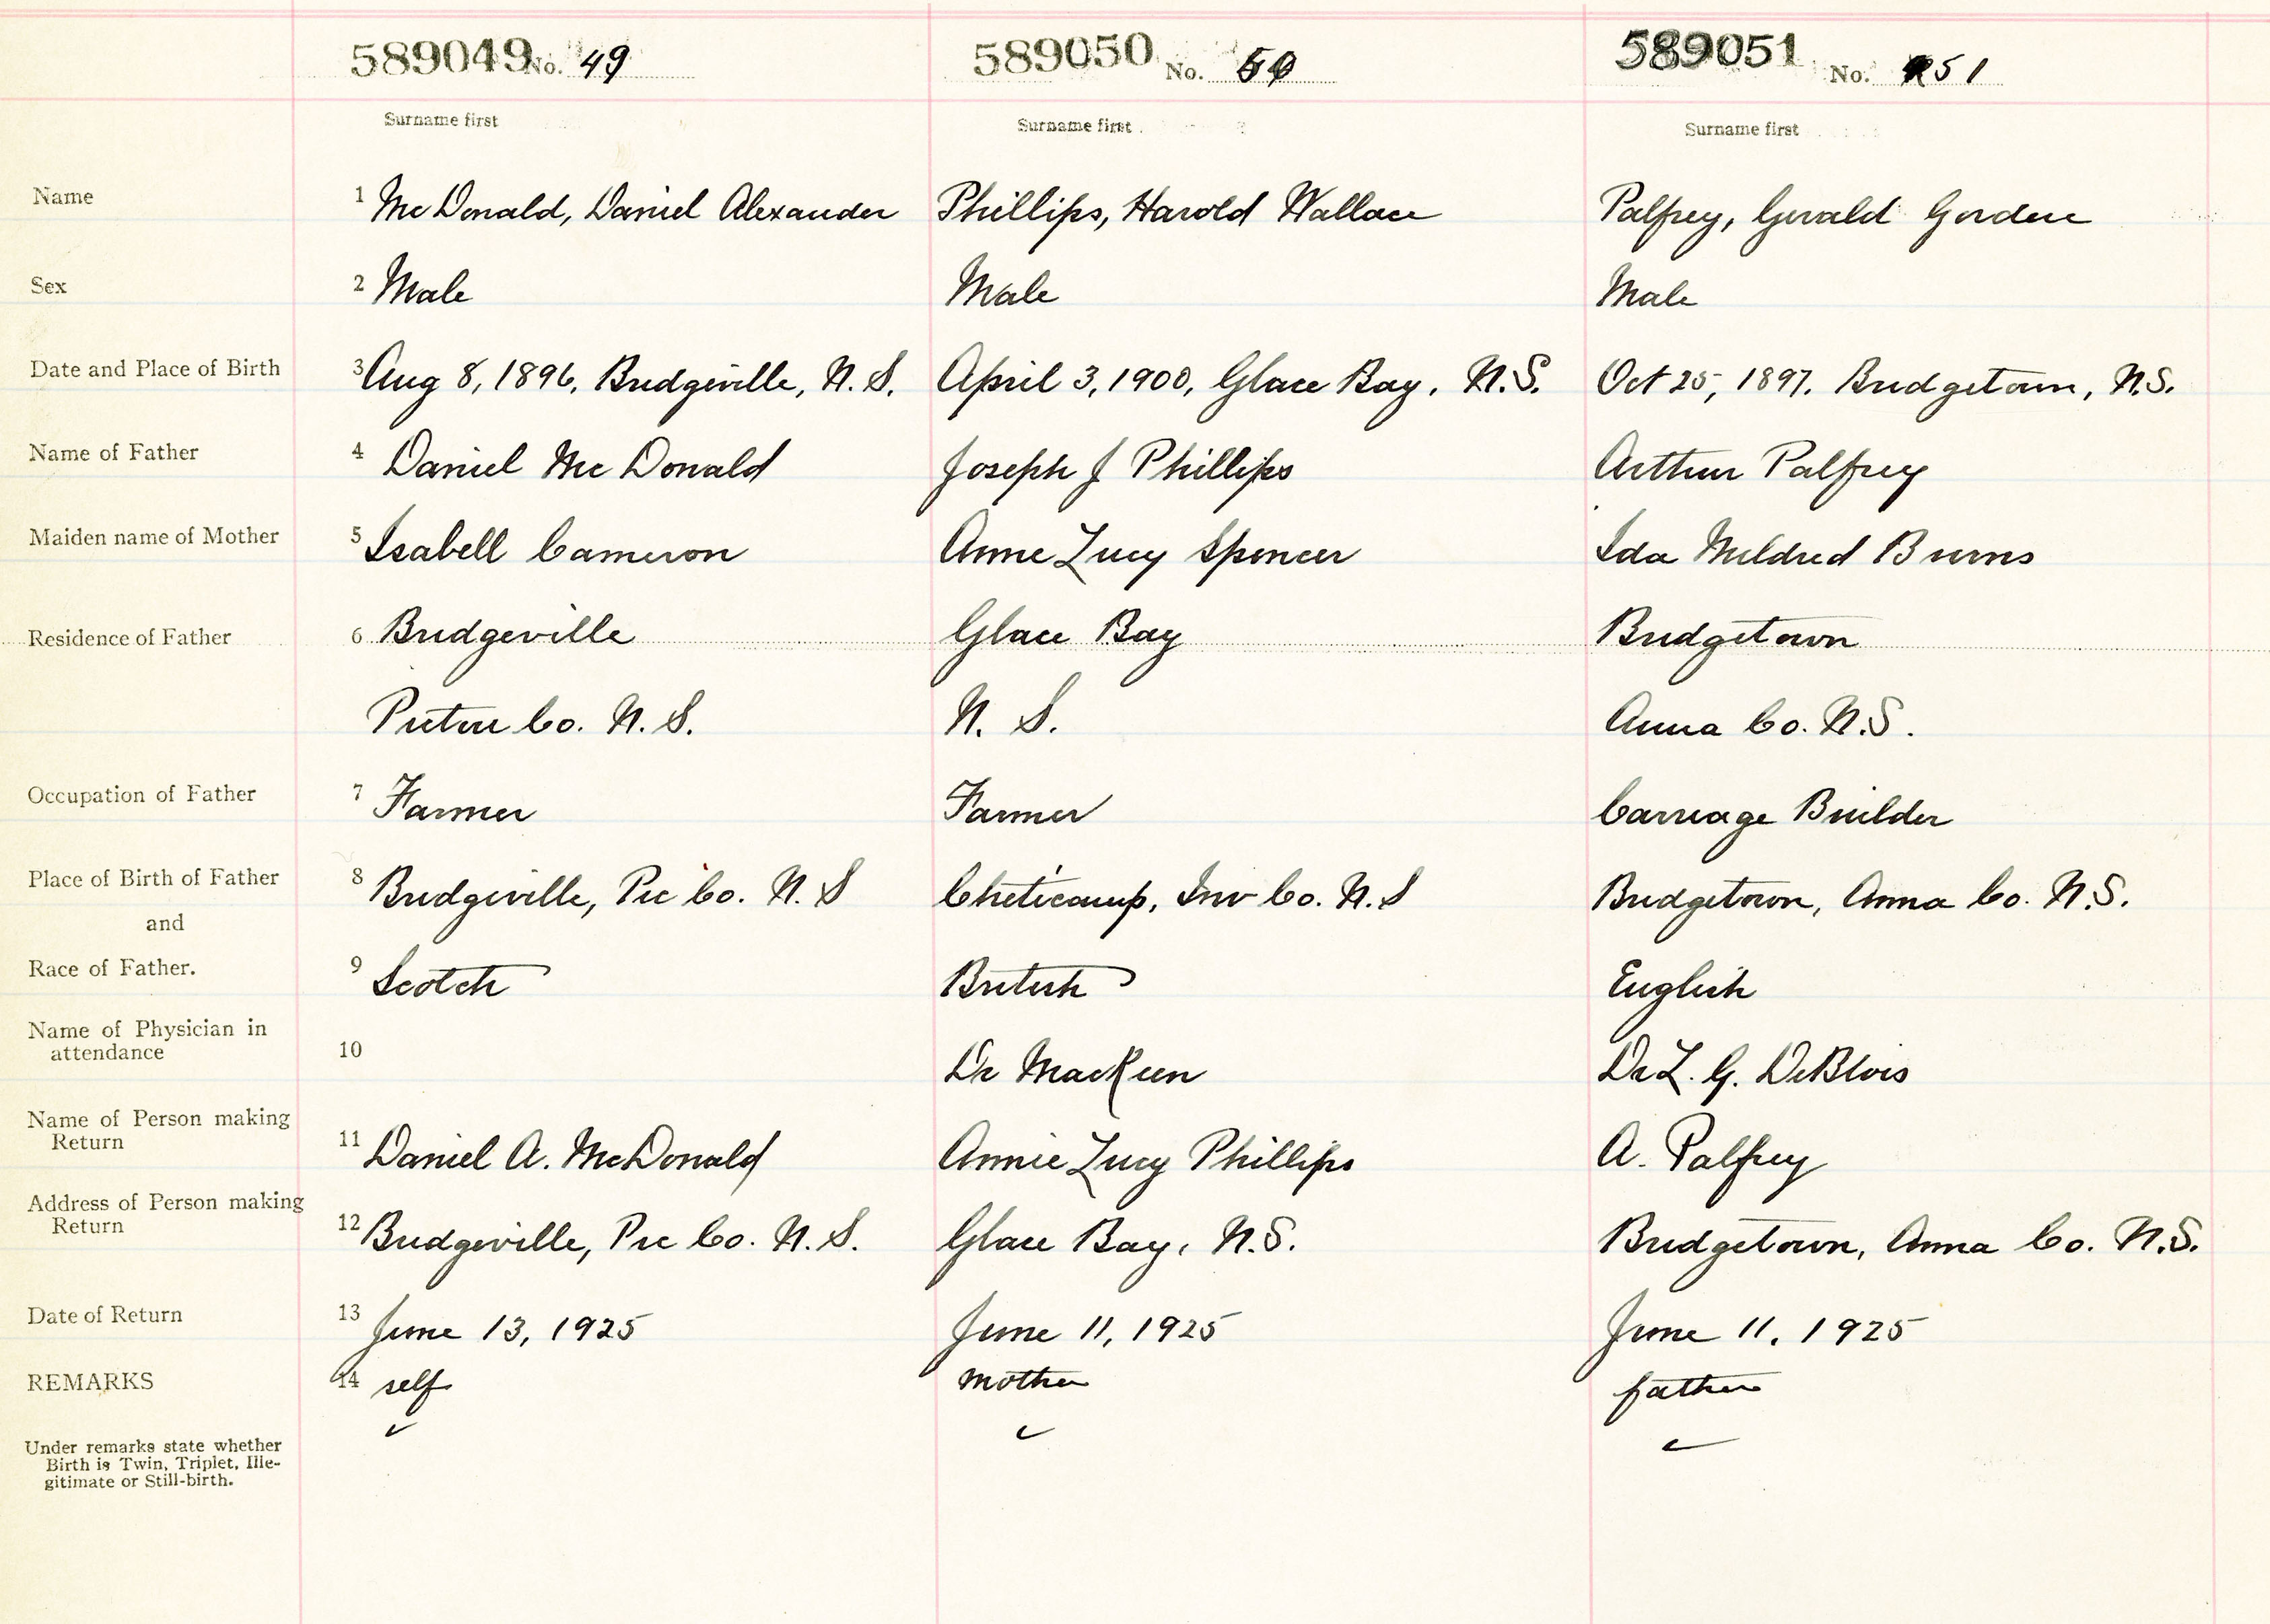 589049 No. 49 589050 No. 50 589051 No. 51
Surname first Surname first Surname first
Name 1 McDonald, Daniel Alexander Phillips, Harold Wallace Palfrey, Gerald Gorden
Sex 2 Male Male Male
Date and Place of Birth 3 Aug 8, 1896, Bridgeville, N. S. April 3, 1900, Glace Bay, N.S. Oct 25, 1897. Bridgetown, N.S.
Name of Father 4 Daniel McDonald Joseph J Phillips Arthur Palfrey
Maiden name of Mother 5 Isabell Cameron Annie Lucy Spencer Ida Mildred Burns
Residence of Father 6 Bridgeville Glace Bay Bridgetown
Pictou Co. N. S. N. S. Anna Co. N.S.
Occupation of Father 7 Farmer Farmer Carriage Builder
Place of Birth of Father 8 Bridgeville, Pic Co. N. S Cheticamp, Inv Co. N. S Bridgetown, Anna Co. N.S.
and
Race of Father. 9 Scotch British English
Name of Physician in
attendance 10 Dr MacKeen Dr L. G. DeBlois
Name of Person making
Return 11 Daniel A. McDonald Annie Lucy Phillips A. Palfrey
Address of Person making
Return 12 Bridgeville, Pic Co. N. S. Glace Bay, N.S. Bridgetown, Anna Co. N.S.
Date of Return 13 June 13, 1925 June 11, 1925 June 11, 1925
REMARKS 14 self mother father
Under remarks state whether
Birth is Twin, Triplet, Ille-
gitimate or Still-birth.